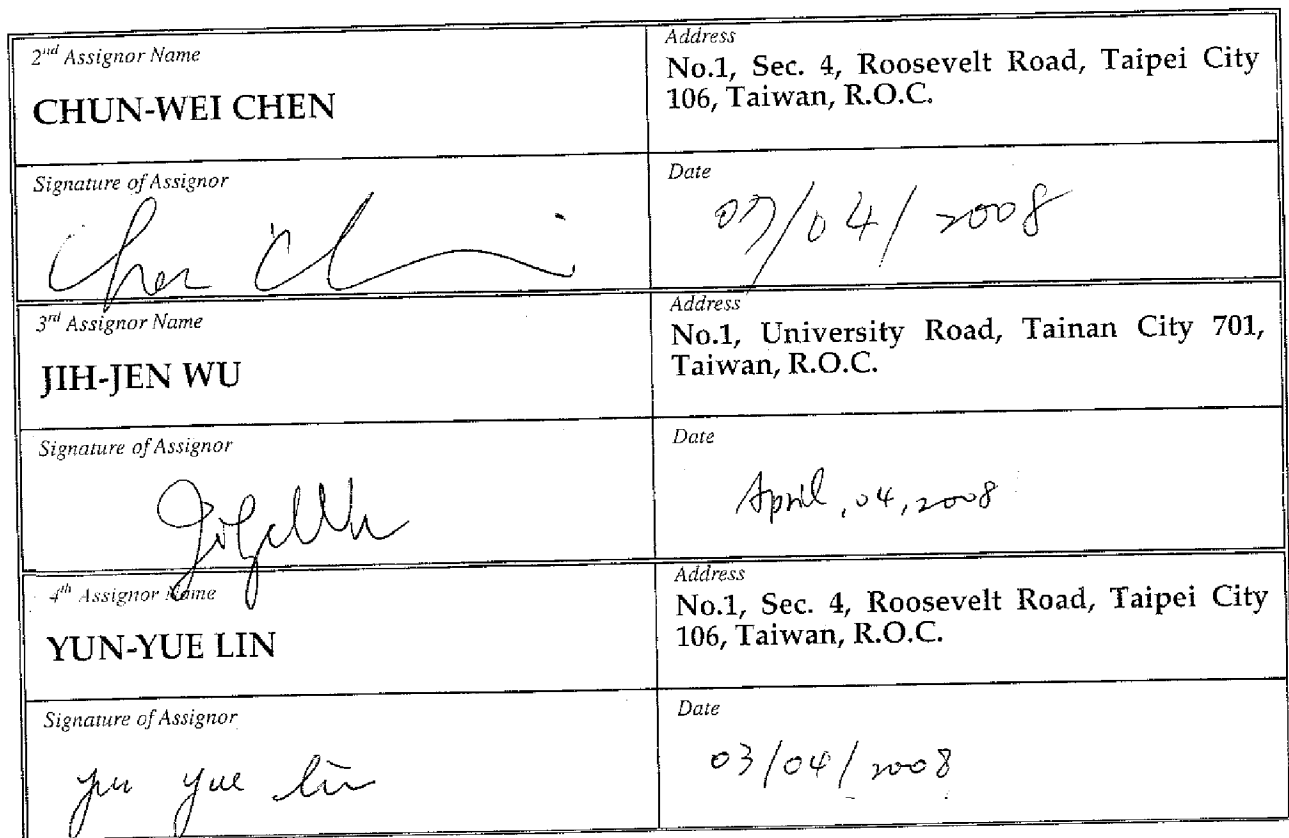 2nd Assignor Name
CHUN-WEI CHEN
Address
No.1, Sec. 4, Roosevelt Road, Taipei City
106, Taiwan, R.O.C.
Signature of Assignor
Date
07/04/2008
3rd Assignor Name
JIH-JEN WU
Address
No.1, University Road, Tainan City 701,
Taiwan, R.O.C.
Signature of Assignor
Date
April, 04, 2008
4th Assignor Name
YUN-YUE LIN
Address
No.1, Sec. 4, Roosevelt Road, Taipei City
106, Taiwan, R.O.C.
Signature of Assignor
yun yue lin
Date
03/04/2008